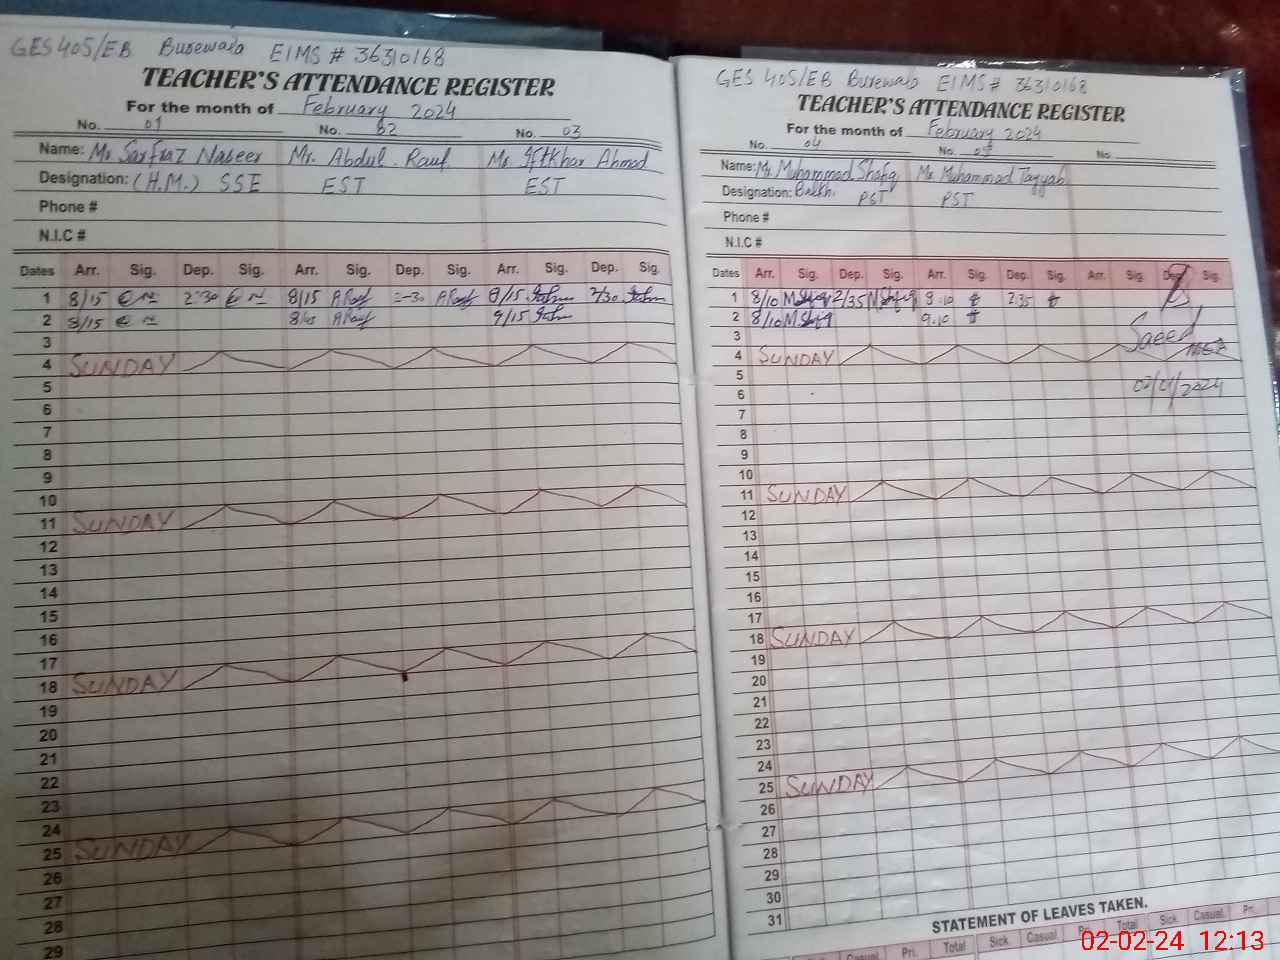 GES 405/EB Burewala EIMS # 36310168
TEACHER'S ATTENDANCE REGISTER
For the month of February 2024
No. 01 No. 02 No. 03
Name: Mr Sarfraz Naseer Mr. Abdul Rauf Mr. Iftkhar Ahmad
Designation: (H.M.) SSE EST EST
Phone #
N.I.C #
Dates Arr. Sig. Dep. Sig. Arr. Sig. Dep. Sig. Arr. Sig. Dep. Sig.
1 8/15 2:30 8/15 ARauf 2-30 ARauf 8/15 2/30
2 8/15 ARauf 9/15
3
4 SUNDAY
5
6
7
8
9
10
11 SUNDAY
12
13
14
15
16
17
18 SUNDAY
19
20
21
22
23
24
25 SUNDAY
26
27
28
29
GES 405/EB Burewala EIMS # 36310168
TEACHER'S ATTENDANCE REGISTER
For the month of February 2024
No. 04 No. 05 No.
Name: Mr Muhammad Shafiq Mr Muhammad Tayyab
Designation: PST PST
Phone #
N.I.C #
Dates Arr. Sig. Dep. Sig. Arr. Sig. Dep. Sig. Arr. Sig. Dep. Sig.
1 8/10 M.Shafiq 2/35 M.Shafiq 8.10 2.35
2 8/10 M.Shafiq 9.10
3 Saeed
4 SUNDAY
5 02/01/2024
6
7
8
9
10
11 SUNDAY
12
13
14
15
16
17
18 SUNDAY
19
20
21
22
23
24
25 SUNDAY
26
27
28
29
30
31
STATEMENT OF LEAVES TAKEN.
Sick Casual Pri. Total Sick Casual Pri. Total Sick Casual Pri.
02-02-24 12:13